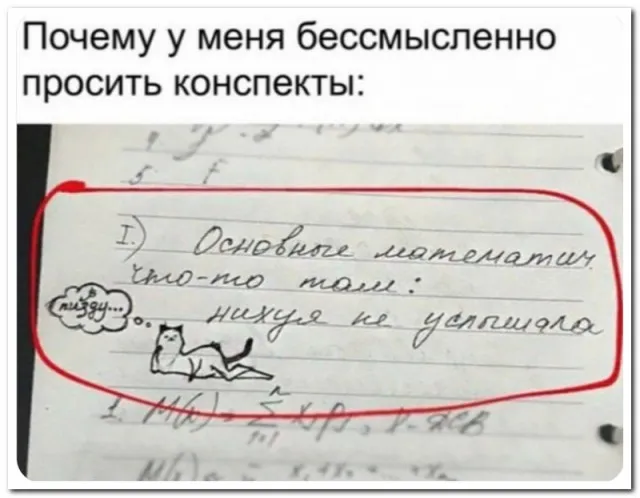 Почему у меня бессмысленно
просить конспекты:
5 f
I.) Основные математич.
что-то там:
в
пизду...
нихуя не услышала
1. M(x) = Σ xᵢpᵢ,